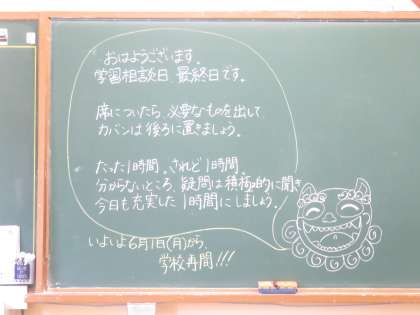 おはようございます。
学習相談日、最終日です。
席についたら、必要なものを出して
カバンは後ろに置きましょう。
たった1時間。されど1時間。
分からないところ、疑問は積極的に聞き
今日も充実した1時間にしましょう。
いよいよ6月1日(月)から、
学校再開!!!